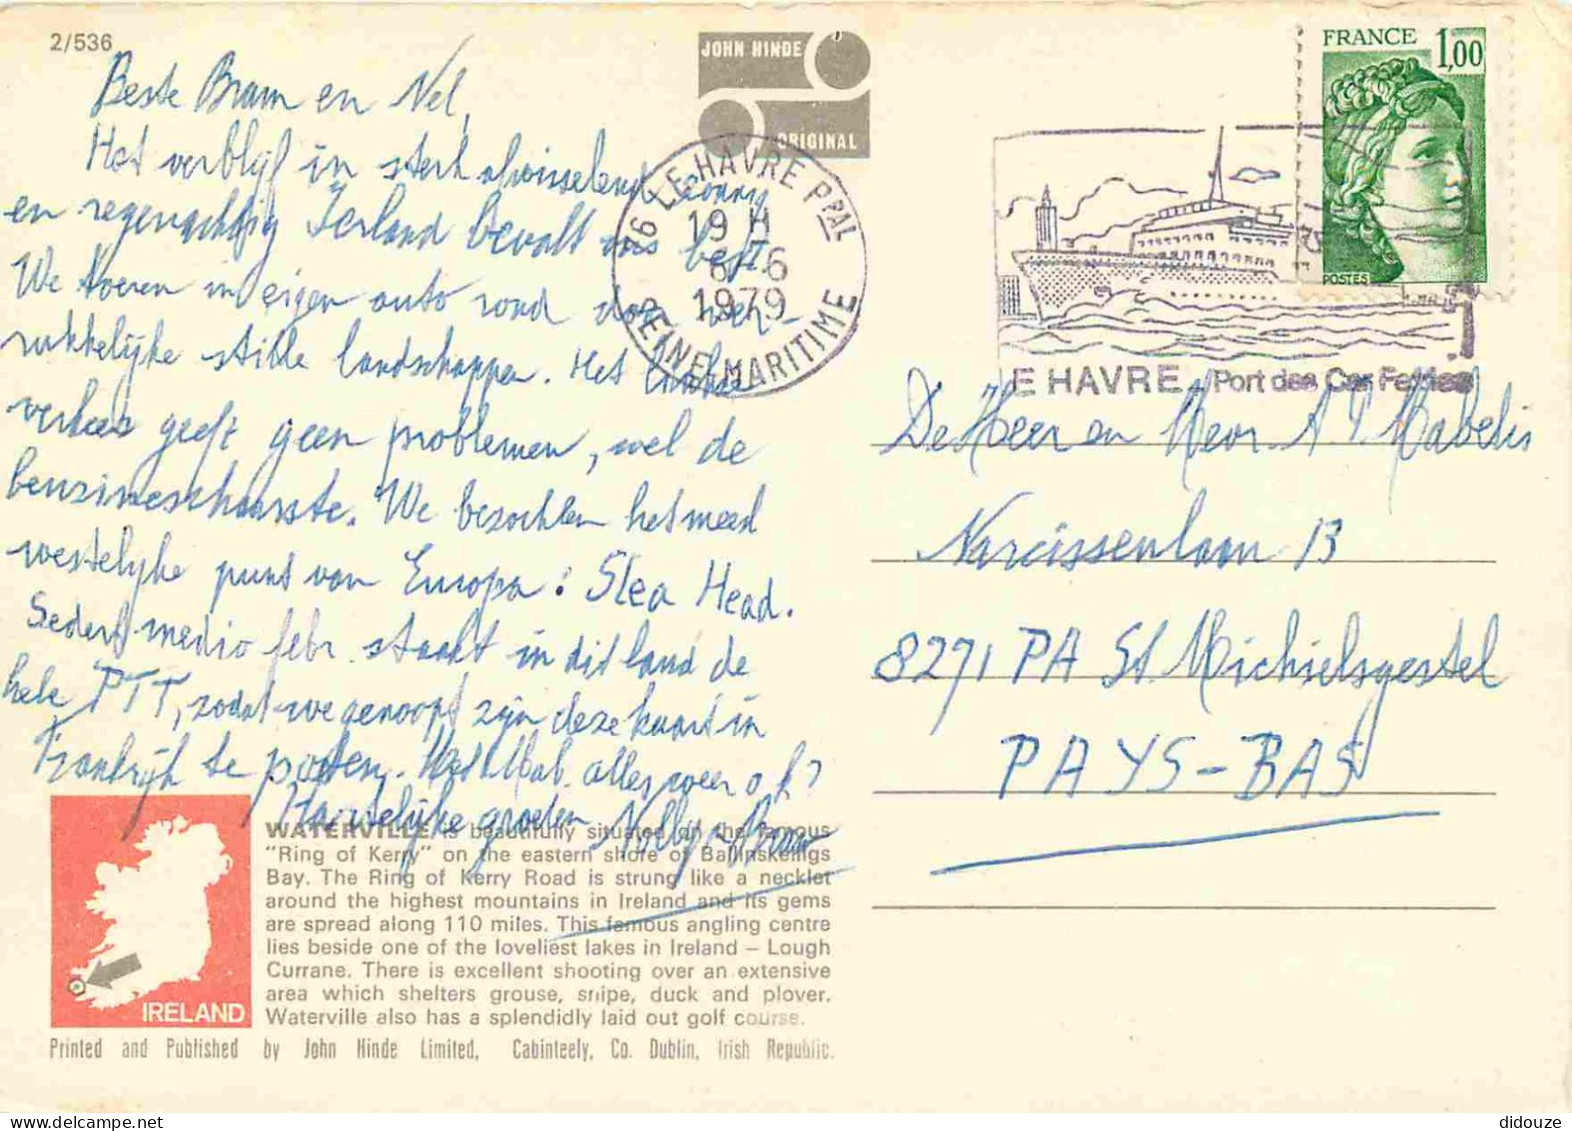 2/536
JOHN HINDE
ORIGINAL
FRANCE 1,00
POSTES
76 LE HAVRE PPAL
19 H
6-6
1979
SEINE-MARITIME
LE HAVRE Port des Car Ferries
Beste Bram en Nel,
Het verblijf in sterk afwisselend zonnig
en regenachtig Ierland bevalt ons best.
We toeren in eigen auto rond door ver-
rukkelijke stille landschappen. Het linkse
verkeer geeft geen problemen, wel de
benzineschaarste. We bezochten het meest
westelijke punt van Europa: Slea Head.
Sedert medio febr. staakt in dit land de
hele PTT, zodat we genoopt zijn deze kaart in
Frankrijk te posten. Met Mab. alles weer o.k?
Hartelijke groeten
De Heer en Mevr A P Mabelis
Narcissenlaan 13
8271 PA St Michielsgestel
PAYS-BAS
IRELAND
WATERVILLE is beautifully situated on the famous
"Ring of Kerry" on the eastern shore of Ballinskelligs
Bay. The Ring of Kerry Road is strung like a necklet
around the highest mountains in Ireland and its gems
are spread along 110 miles. This famous angling centre
lies beside one of the loveliest lakes in Ireland – Lough
Currane. There is excellent shooting over an extensive
area which shelters grouse, snipe, duck and plover.
Waterville also has a splendidly laid out golf course.
Printed and Published by John Hinde Limited, Cabinteely, Co. Dublin, Irish Republic.
didouze